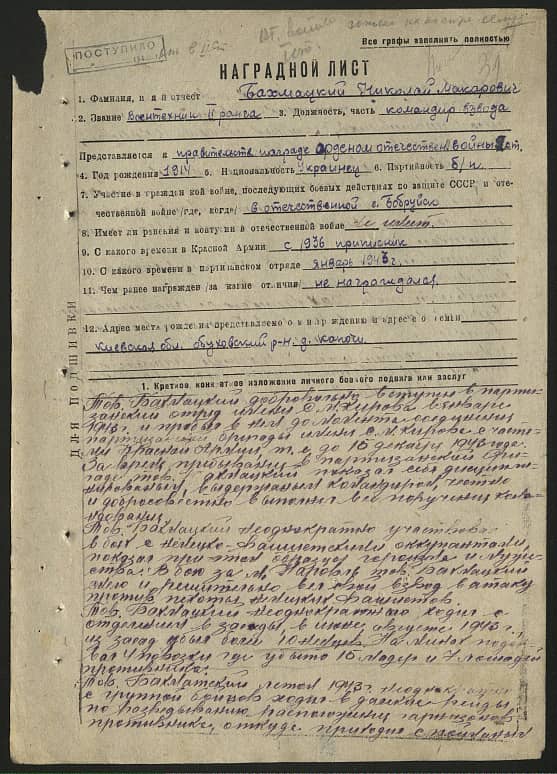 ПОСТУПИЛО
Все графы заполнить полностью
31
НАГРАДНОЙ ЛИСТ
1. Фамилия, имя и отчест Бахмацкий Николай Макарович
2. Звание Воентехник II ранга 3. Должность, часть командир взвода
Представляется к правительств награде орденом отечествен. войны ст.
4. Год рождения 1914 5. Национальность Украинец 6. Партийность б/п
7. Участие в гражданской войне, последующих боевых действиях по защите СССР и оте-
чественной войне /где, когда/ в отечественной г. Бобруйск
8. Имеет ли ранения и контузии в отечественной войне не имеет.
9. С какого времени в Красной Армии с 1936 приписник
10. С какого времени в партизанском отряде январь 1943 г.
11. Чем ранее награжден /за какие отличия/ не награждался
12. Адрес места рождения представляемого к награждению и адрес его семьи
Киевская обл. Обуховский р-н. д.
Для подшивки
1. Краткое, конкретное изложение личного боевого подвига или заслуг
Тов. Бахмацкий добровольно вступил в парти-
занский отряд имени С.М. Кирова в январе
1943 г. и пробыл в нем до момента соединения
партизанской бригады имени С.М. Кирова с частя-
ми Красной Армии, т.е. до 16 декабря 1943 года.
За время пребывания в партизанской бри-
гаде тов. Бахмацкий показал себя дисципли-
нированным, выдержанным командиром, честно
и добросовестно выполнял все поручения кома-
ндования.
Тов. Бахмацкий неоднократно участвовал
в боях с немецко-фашистскими оккупантами,
показал при этом образцы геройства и муже-
ства. В бою за м. Паровль тов. Бахмацкий
смело и решительно вел свой взвод в атаку
против пехоты немецких фашистов.
Тов. Бахмацкий неоднократно ходил с
отделением в засады, в июле, августе 1943 г.,
из засад убил 10 немцев. На минах подор-
вал повозки где убито 15 мадяр и 7 лошадей
противника.
Тов. Бахмацкий летом 1943 г. неоднократно
с группой бойцов ходил в далекие рейды
по разведыванию расположения гарнизонов
противника, откуда приходил с